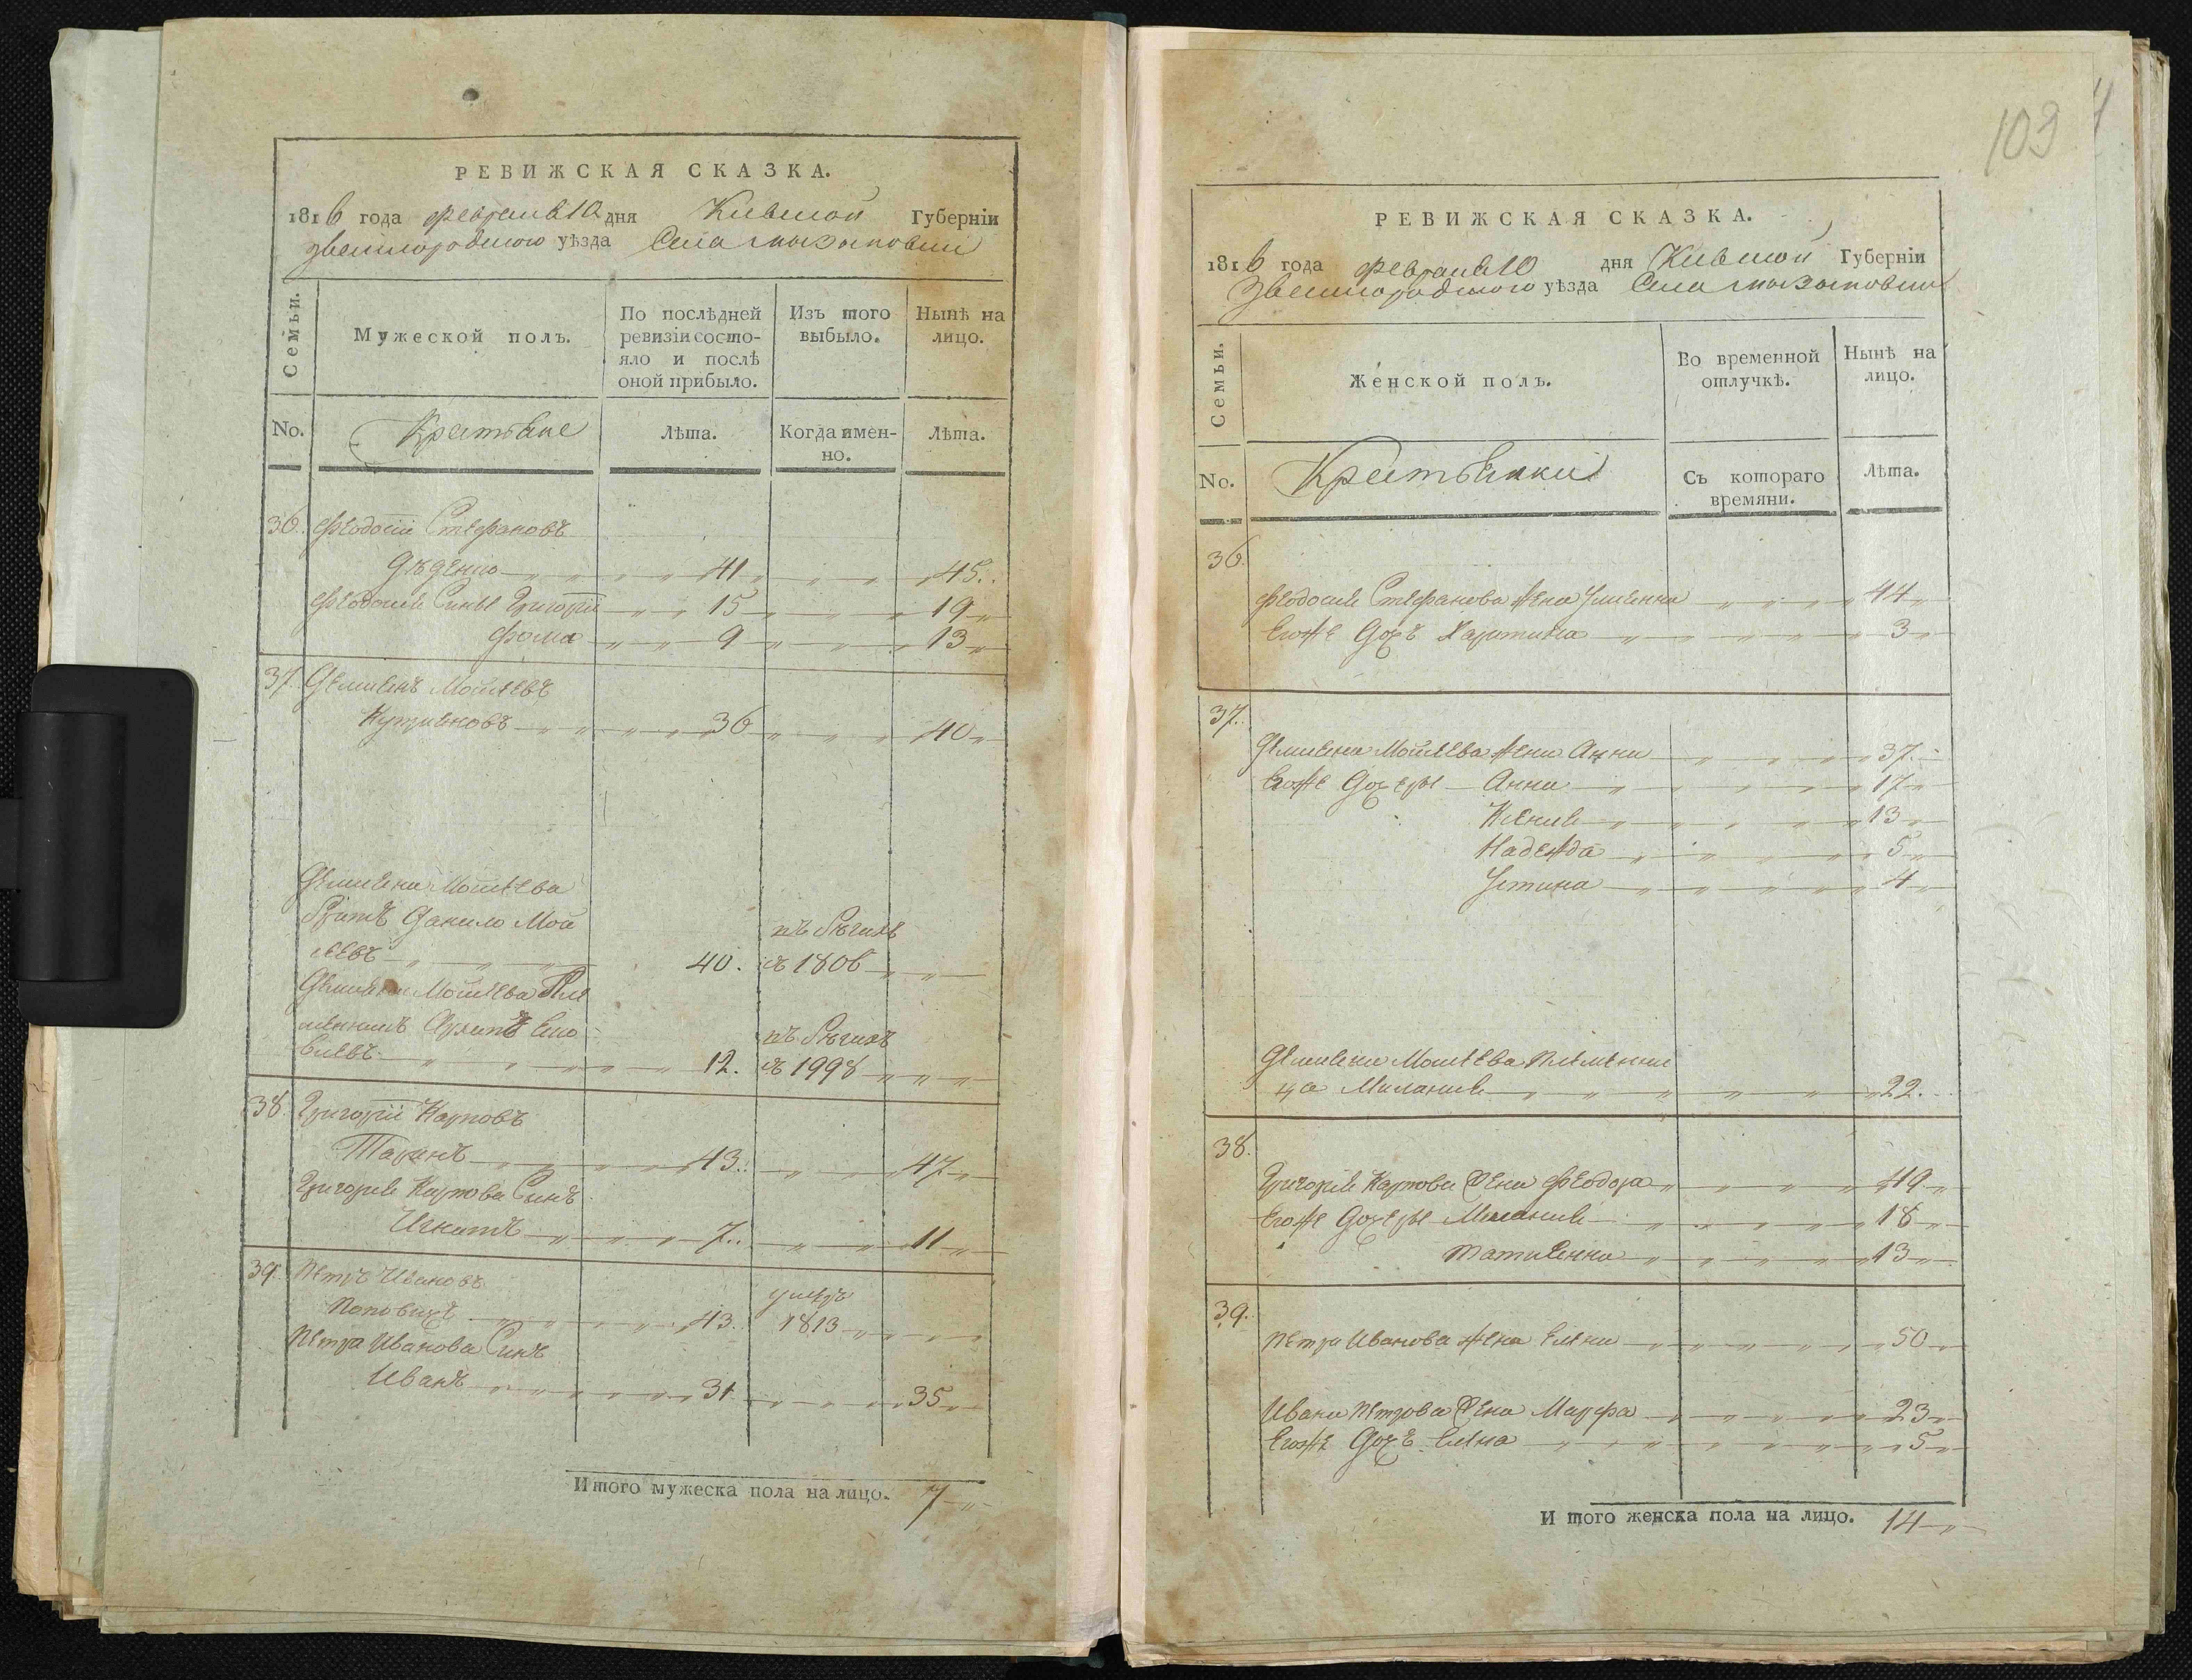 РЕВИЖСКАЯ СКАЗКА.
1816 года февраля 10 дня Киевской Губерніи
Звенигородского уѣзда Села
Семьи.
Мужеской полъ.
По послѣдней ревизіи состояло и послѣ оной прибыло.
Изъ того выбыло.
Нынѣ на лицо.
No.
Крестьяне
Лѣта.
Когда именно.
Лѣта.
36. Феодосій Стефановъ
41 45.
Феодосія Сины Григорій 15 19
Фома 9 13
37. Демиянъ Мойсѣевъ
36 40
Демияна Мойсѣева
Братъ Данило Мой
сѣевъ 40. въ бѣгахъ
съ 1806
Демияна Мойсѣева Пле
менникъ
12. въ бѣгахъ
съ 1998
38. Григорій Карповъ
Таранъ 43. 47
Григорія Карпова Синъ
Игнатъ 7. 11
39. Петръ Ивановъ
Поповичъ 43. умеръ 1813
Петра Иванова Синъ
Иванъ 31 35
Итого мужеска пола на лицо. 7
103
РЕВИЖСКАЯ СКАЗКА.
1816 года февраля 10 дня Киевской Губерніи
Звенигородского уѣзда Села
Семьи.
Женской полъ.
Во временной отлучкѣ.
Нынѣ на лицо.
No.
Крестьянки
Съ котораго времяни.
Лѣта.
36
Феодосія Стефанова жена Улиянна 44
Егоже Дочь Харитина 3
37.
Демияна Мойсѣева жена Анна 37.
Егоже Дочеры Анна 17
Ксения 13
Надежда 5
Устина 4
Демияна Мойсѣева племянни
ца Милания 22.
38.
Григорія Карпова жена Феодора 49
Егоже Дочеры Милания 18
Татиянна 13
39.
Петра Иванова жена Елена 50
Ивана Петрова жена Марфа 23
Егоже Дочь Елена 5
Итого женска пола на лицо. 14